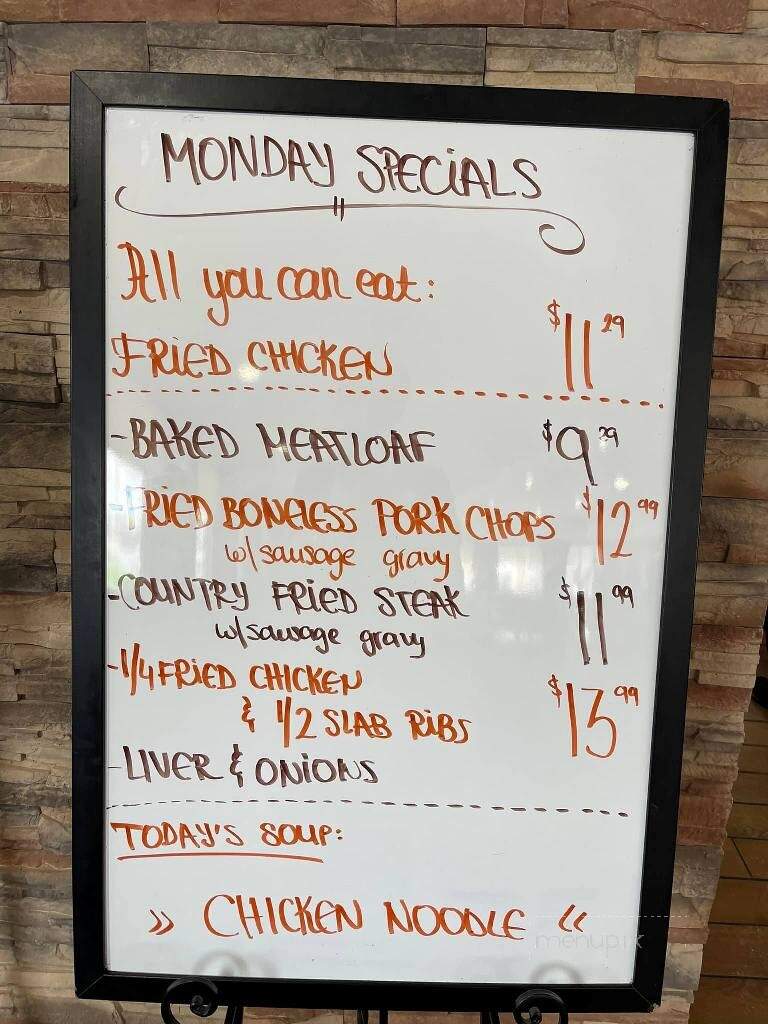 MONDAY SPECIALS
All you can eat:
FRIED CHICKEN $11 29
-BAKED MEATLOAF $9 29
-FRIED BONELESS PORK CHOPS $12 99
w/sausage gravy
-COUNTRY FRIED STEAK $11 99
w/sausage gravy
-1/4 FRIED CHICKEN
& 1/2 SLAB RIBS $13 99
-LIVER & ONIONS
TODAY'S SOUP:
» CHICKEN NOODLE «
menupix